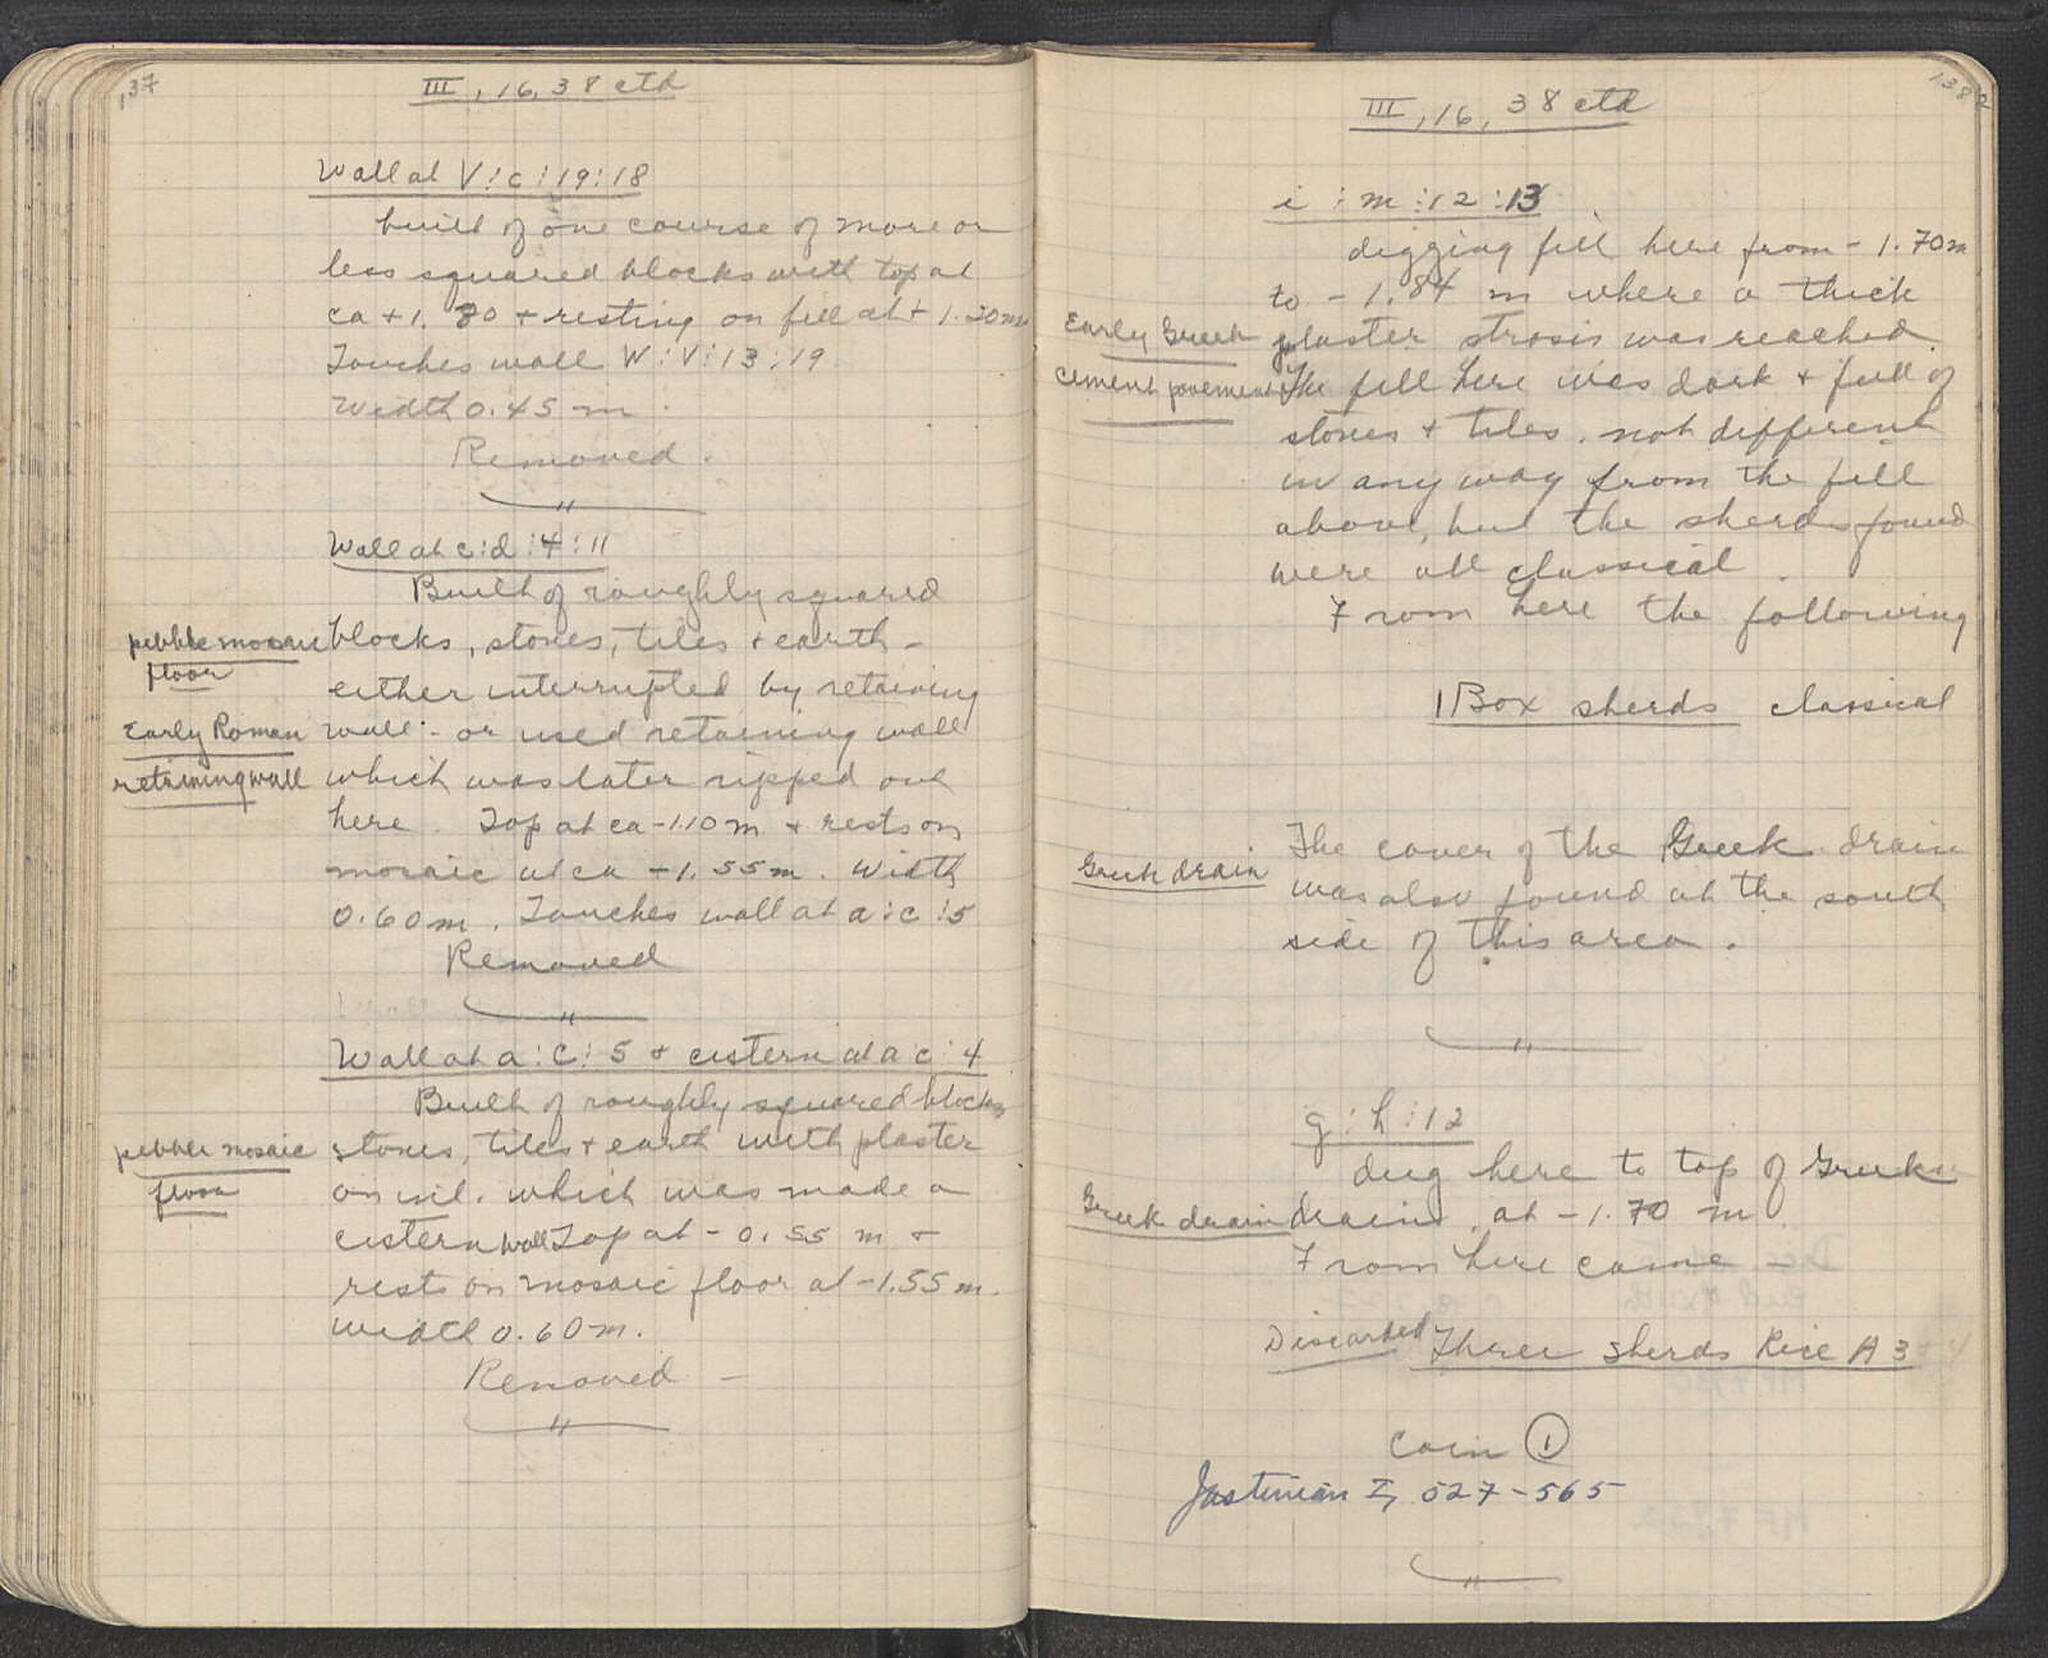 137
III, 16, 38 ctd
Wall at V:c:19:18
built of one course of more or
less squared blocks with top at
ca + 1.80 + resting on fill at + 1.20 m
Touches wall W:V:13:19
Width 0.45 m.
Removed.
"
Wall at c:d:4:11
Built of roughly squared
pebble mosaic
floor
blocks, stones, tiles + earth -
either interrupted by retaining
Early Roman
retaining wall
wall - or used retaining wall
which was later ripped out
here. Top at ca -1.10 m + rests on
mosaic at ca -1.55 m. Width
0.60 m. Touches wall at a:c:5
Removed
"
Wall at a:c:5 + cistern at a c:4
Built of roughly squared blocks
pebble mosaic
floor
stones, tiles + earth with plaster
on which was made a
cistern wall Top at - 0.55 m +
rests on mosaic floor at -1.55 m.
Width 0.60 m.
Removed -
"
138
III, 16, 38 ctd
i:m:12:13
digging fill here from - 1.70 m
to - 1.84 m where a thick
Early Greek
cement pavement
plaster strosis was reached.
The fill here was dark + full of
stones + tiles, not different
in any way from the fill
above, but the sherds found
were all classical.
From here the following
1 Box sherds classical
Greek drain
The cover of the Greek drain
was also found at the south
side of this area.
"
g:h:12
dug here to top of Greek
Greek drain
drain, at - 1.70 m.
From here came -
Discarded Three sherds Rice A 3
Coin 1
Justinian I, 527-565
"